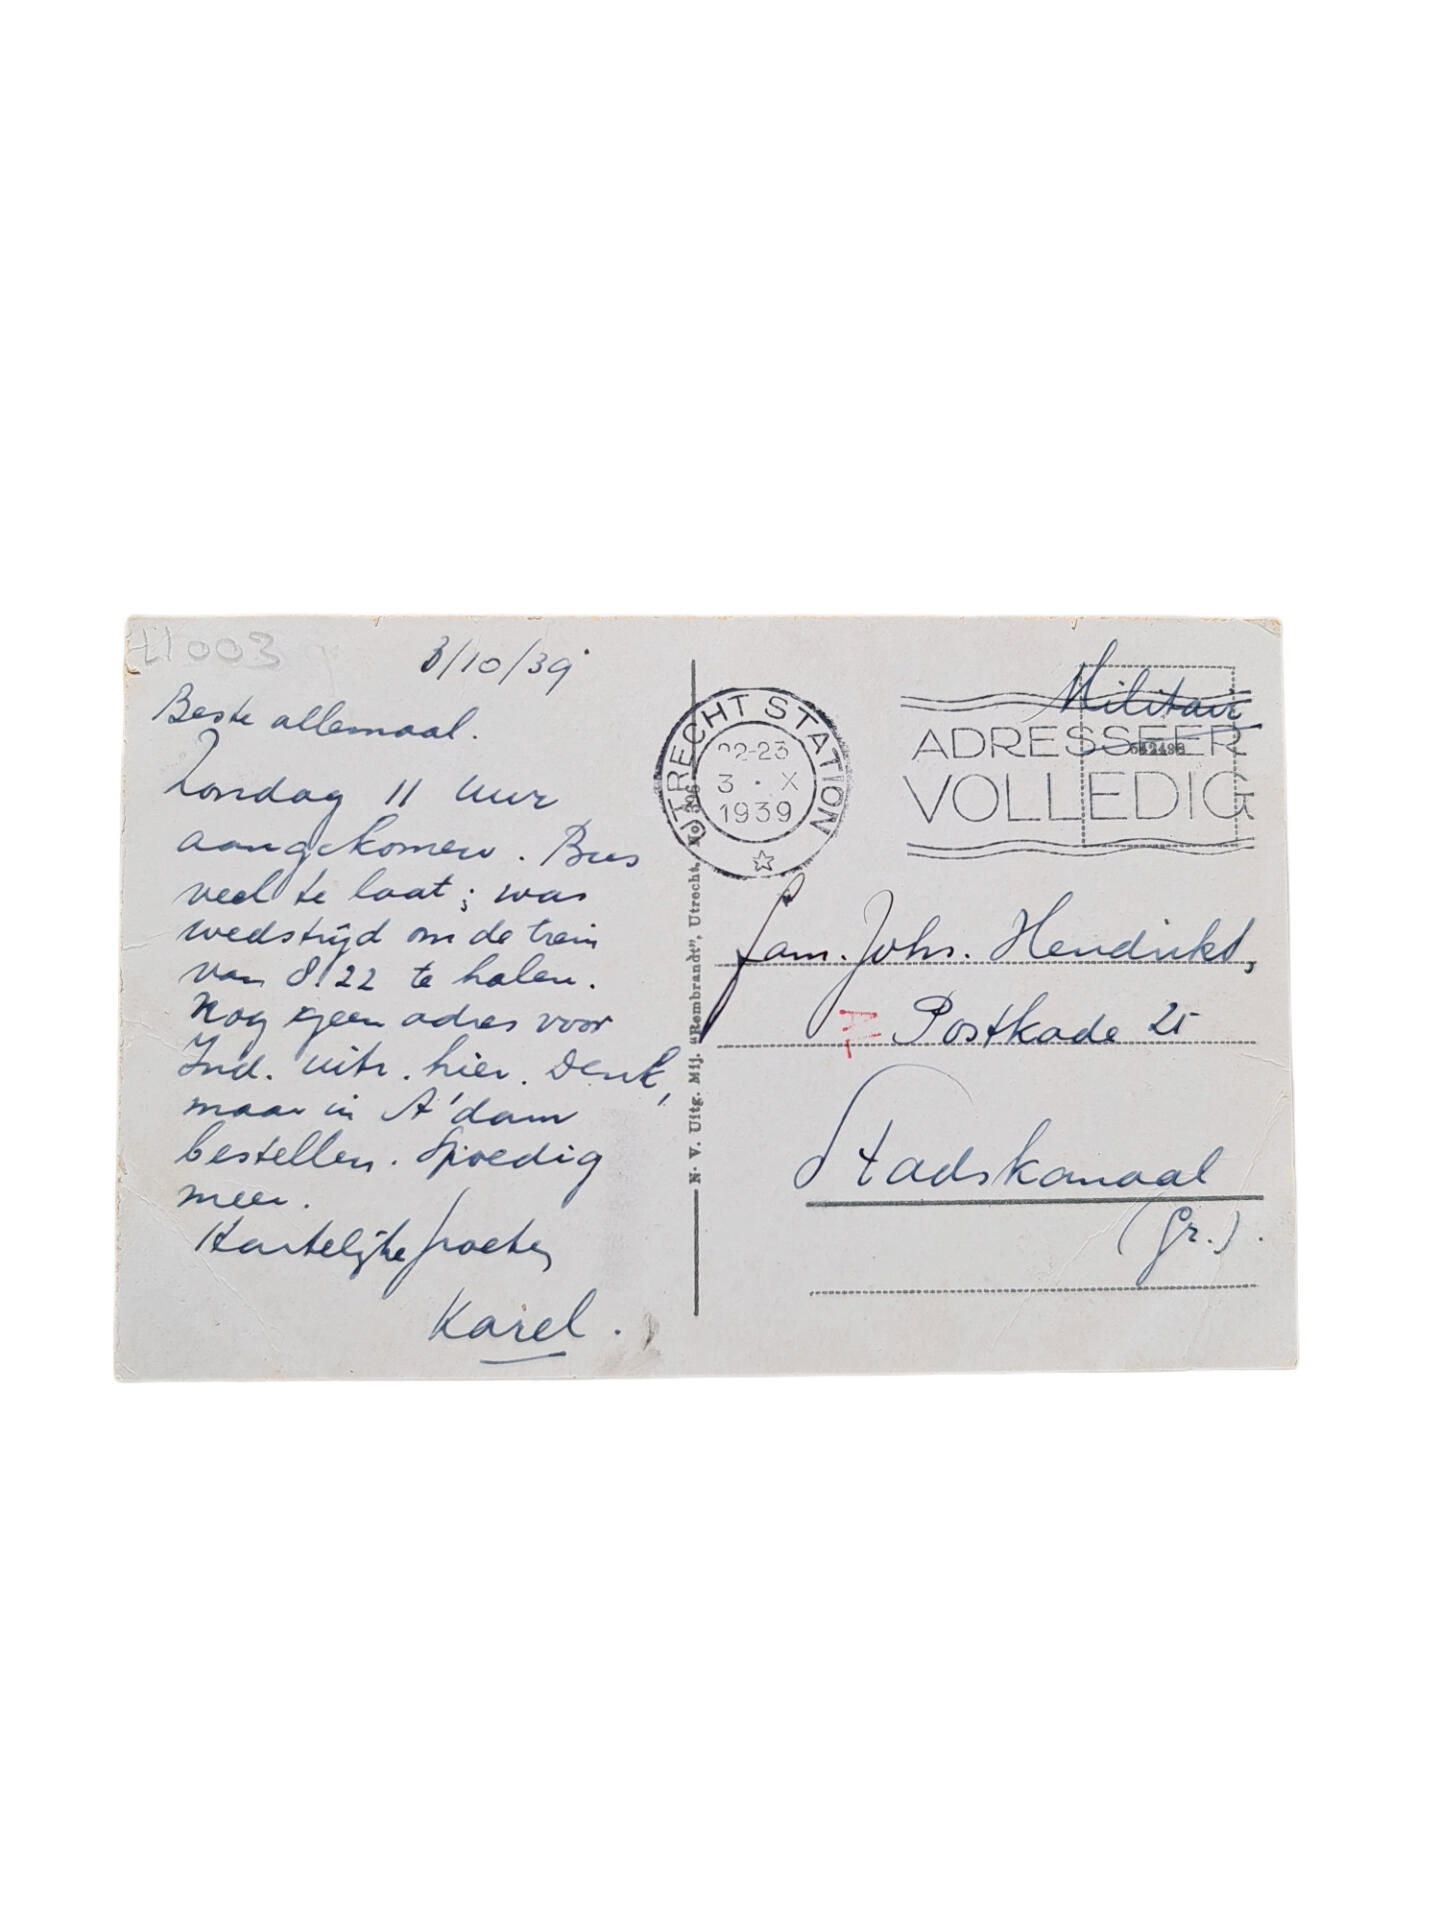 H003
3/10/39
Beste allemaal.
Zondag 11 uur
aangekomen. Bus
veel te laat; was
wedstrijd om de trein
van 8.22 te halen.
Nog geen adres voor
Ind. uitr. hier. Denk,
maar in A'dam
bestellen. Spoedig
meer.
Hartelijke groeten,
Karel.
N.V. Uitg. Mij. "Rembrandt", Utrecht. No 396
UTRECHT STATION
22-23
3 · X
1939
Militair
ADRESSEER
VOLLEDIG
Fam. Johs. Hendriks,
Postkade 25
Stadskanaal
(Gr.).